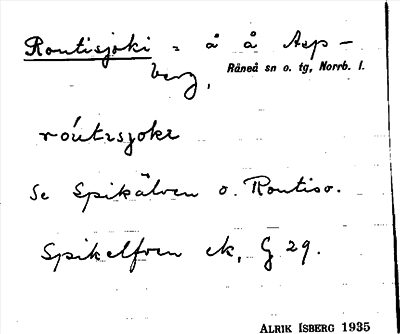 Routisjoki = å å Asp-
berg,
Råneå sn o. tg, Norrb. l.
róutısjokı
Se Spikälven o. Routiso.
Spikelfven ek, G 29.
ALRIK ISBERG 1935